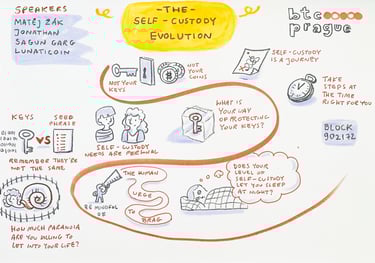 SPEAKERS
MATĚJ ŽÁK
JONATHAN
SAGUN GARG
LUNATICOIN
-THE-
SELF-CUSTODY
EVOLUTION
btc
prague
NOT YOUR
KEYS
NOT
YOUR
COINS
SELF-CUSTODY
IS A JOURNEY
TAKE
STEPS AT
THE TIME
RIGHT FOR
YOU
BLOCK
902172
KEYS
VS
SEED
PHRASE
REMEMBER THEY'RE
NOT THE SAME
SELF-CUSTODY
NEEDS ARE PERSONAL
WHAT IS
YOUR WAY
OF PROTECTING
YOUR KEYS?
HOW MUCH PARANOIA
ARE YOU WILLING TO
LET INTO YOUR LIFE?
BE MINDFUL
OF
THE HUMAN
URGE
TO
BRAG
DOES YOUR
LEVEL OF
SELF-CUSTODY
LET YOU SLEEP
AT NIGHT?